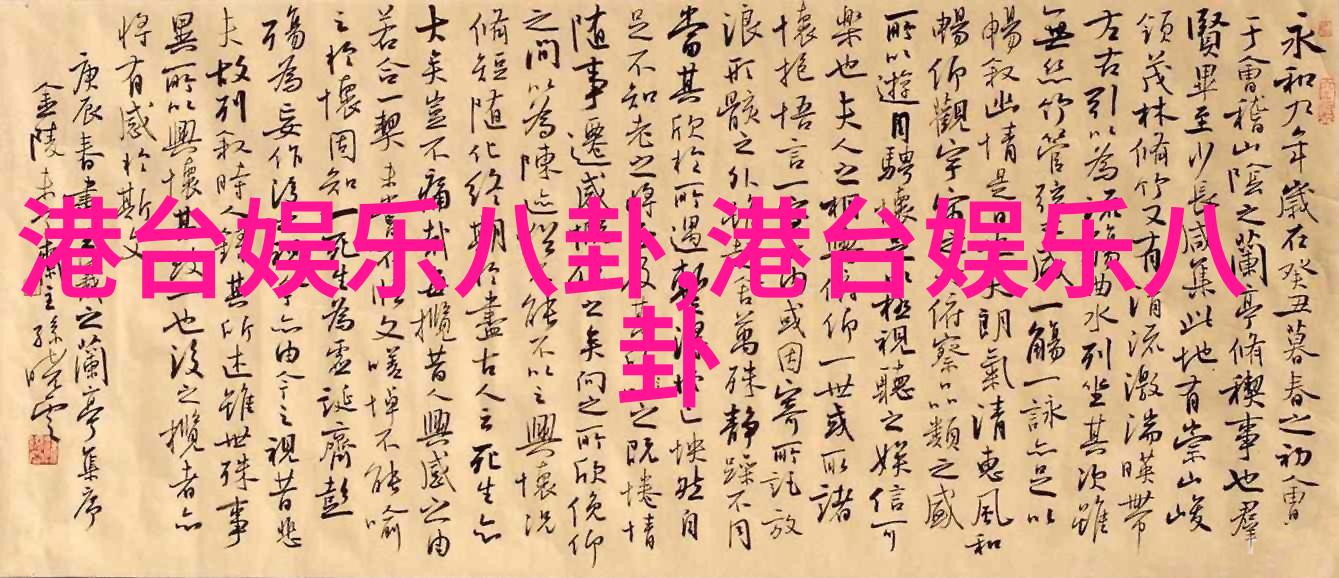 港台娱乐八卦,港台娱乐八
卦
永和九年歲在癸丑暮春之初會
于會稽山陰之蘭亭脩禊事也羣
賢畢至少長咸集此地有崇山峻
領茂林脩竹又有清流激湍暎帶
左右引以為流觴曲水列坐其次雖
無絲竹管弦之盛一觴一詠亦足以
暢叙幽情是日也天朗氣清惠風和
暢仰觀宇宙之大俯察品類之盛
所以遊目騁懷足以極視聽之娛信可
樂也夫人之相與俯仰一世或取諸
懷抱悟言一室之內或因寄所託放
浪形骸之外雖趣舍萬殊靜躁不同
當其欣於所遇暫得於己怏然自
足不知老之將至及其所之既惓情
隨事遷感慨係之矣向之所欣俛仰
之間以為陳迹猶不能不以之興懷況
脩短隨化終期於盡古人云死生亦
大矣豈不痛哉每攬昔人興感之由
若合一契未嘗不臨文嗟悼不能喻
之於懷固知一死生為虛誕齊彭
殤為妄作後之視今亦由今之視昔悲
夫故列叙時人錄其所述雖世殊事
異所以興懷其致一也後之攬者亦
將有感於斯文
庚辰春書王羲之蘭亭集序
金陵 孫曉雲